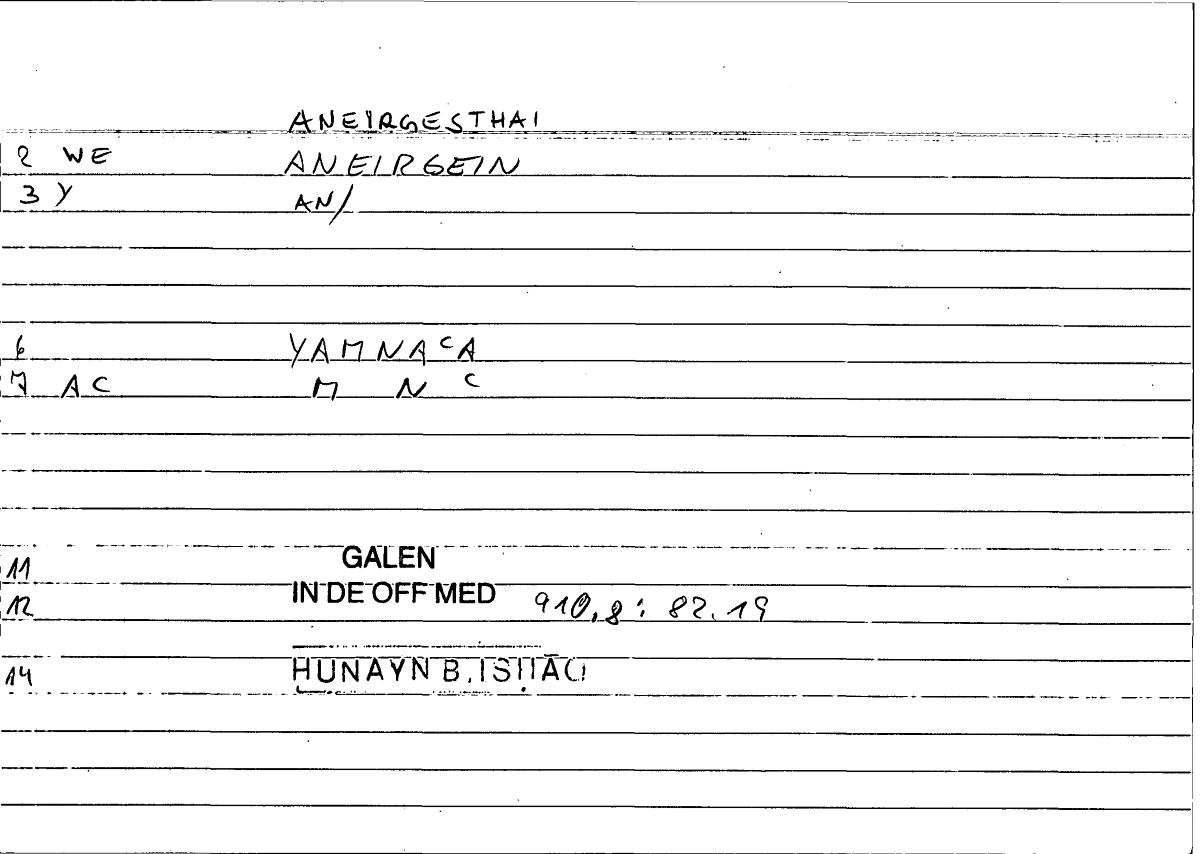 ANEIRGESTHAI
2 WE ANEIRGEIN
3 Y AN/
6 YAMNAᶜA
7 AC M N ᶜ
11 GALEN
12 IN DE OFF MED 910,8: 82.19
14 ḤUNAYN B. ISḤĀQ